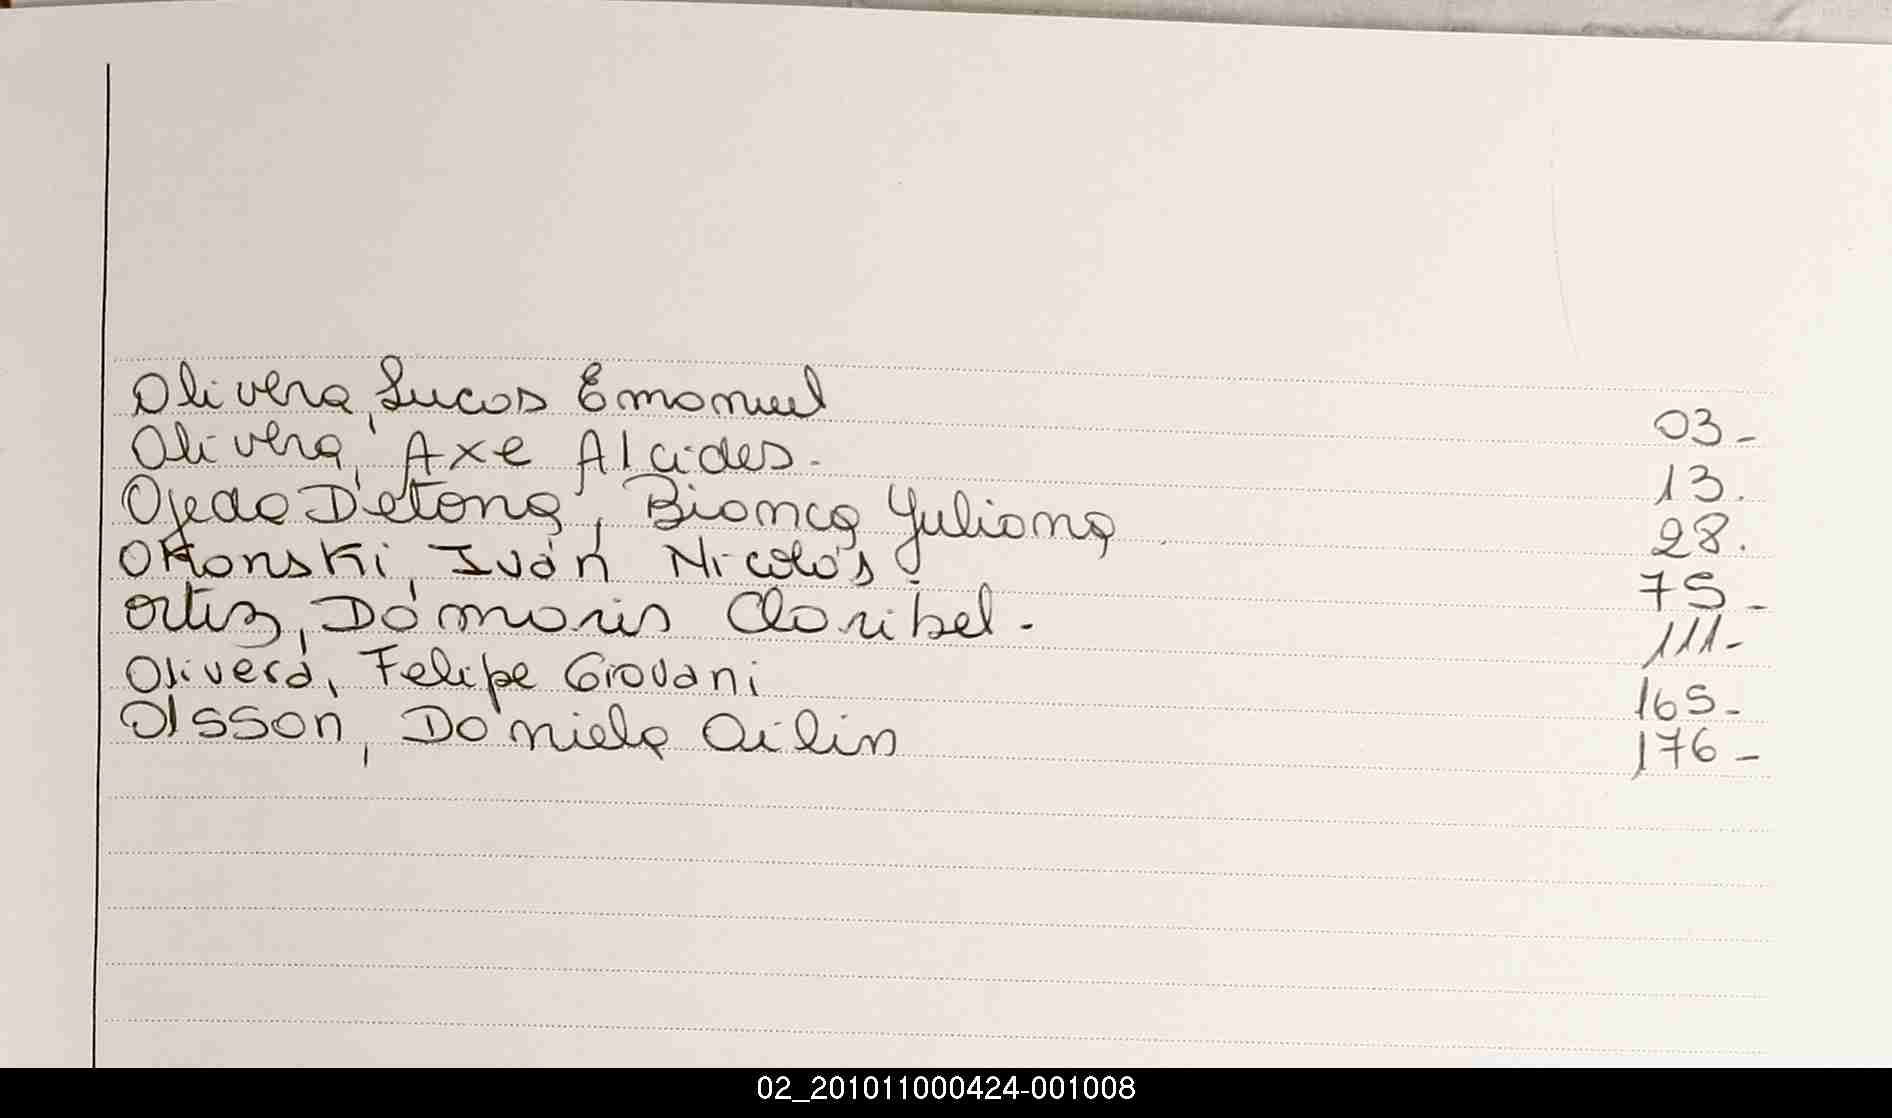 Olivera, Lucas Emanuel 03-
Olivera, Axe Alcides. 13.
Ojeda D'etona, Bianca Yuliana 28.
Okonski, Iván Nicolás. 75-
Ortiz, Dámaris Claribel. 111-
Olivera, Felipe Giovani 165-
Olsson, Daniela Ailin 176-
02_201011000424-001008